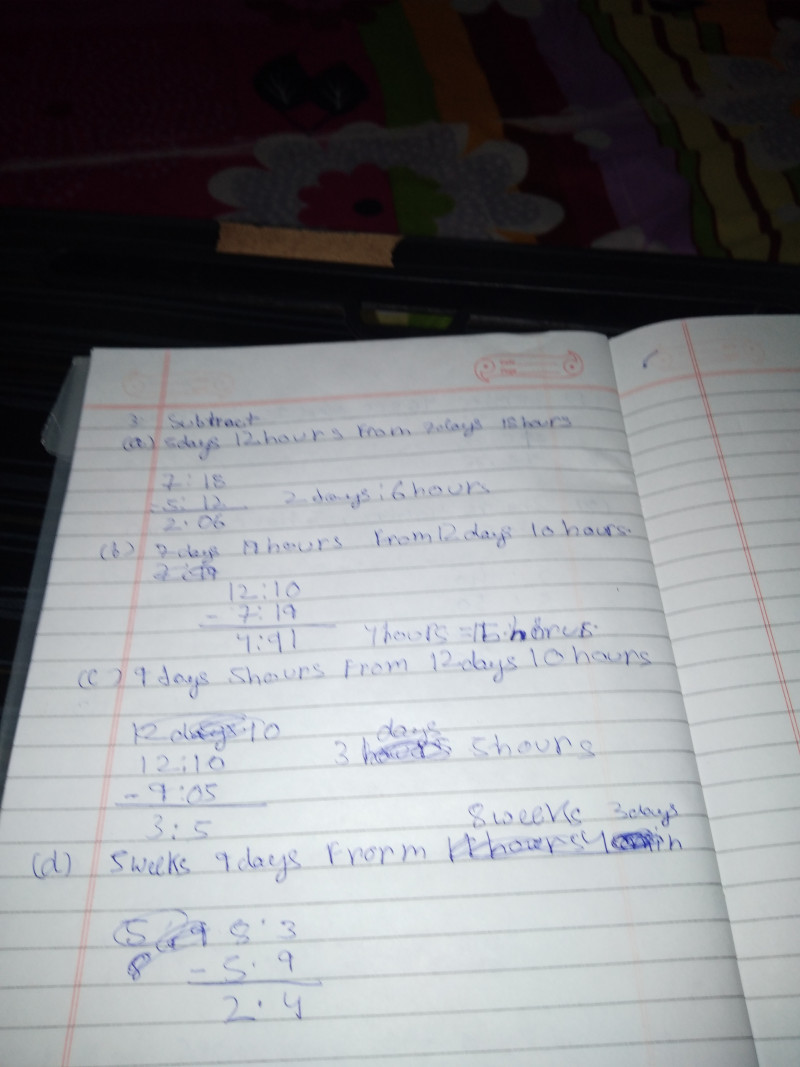 3. Subtract
(a) 5days 12hours From 7days 18hours
7:18
- 5: 12 2 days:6hours
2:06
(b) 7 days 19hours From12days 10hours.
7:19
12:10
- 7:19
4:91 4hours =15 hours.
(c) 9days 5hours From 12days 10hours
12 days 10
12:10 3 days 5hours
- 9:05
3:5
8weeks 3days
(d) 5weeks 9days From
8:3
8 - 5.9
2.4